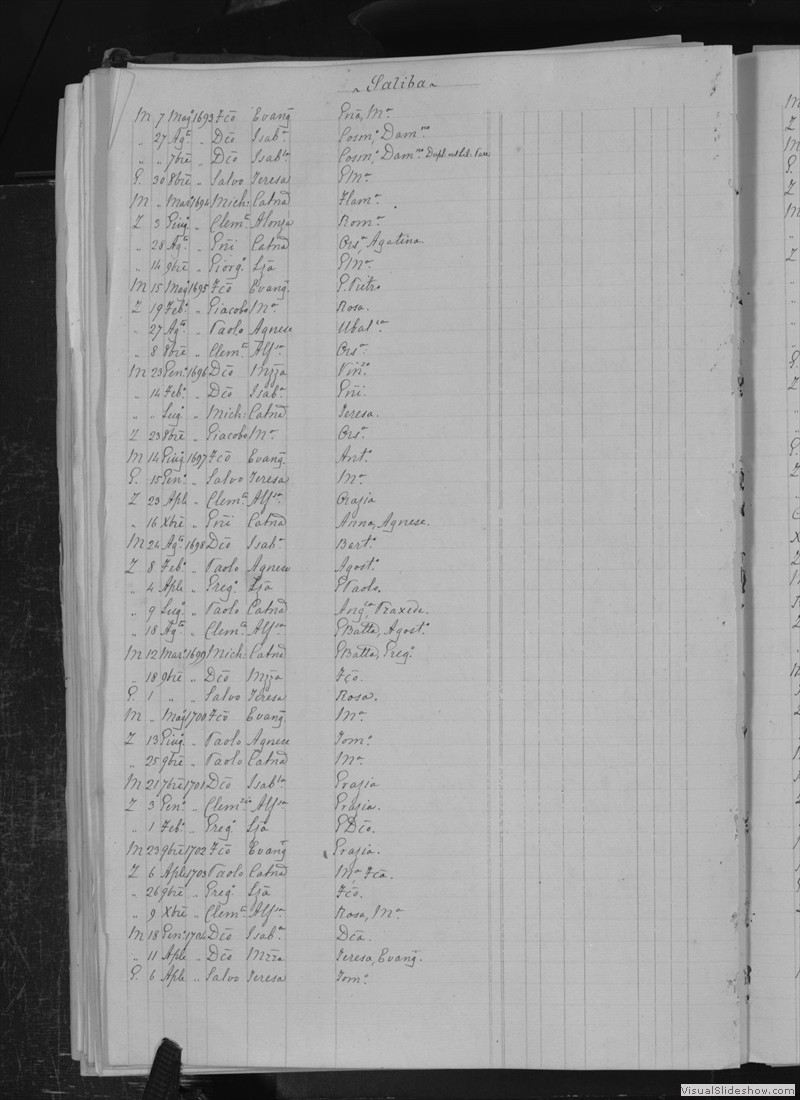 ~ Saliba ~
M 7 Magº 1693 Fcō Evang̃ Gnā, Mª
„ 27 Agº „ Dcō Isabª Cosmº, Damⁿᵒ
„ „ 7brē „ Dcō Isabˡª Cosmº, Damⁿᵒ
G. 30 8brē „ Salvo Teresa GMª
M „ Marº 1694 Mich: Catnā Flamª
Z 3 Giugº „ Clemᵗᵉ Alonza Romª
„ 28 Agº „ Gñi Catnā Orsª Agatina.
„ 14 9brē „ Giorgº Ljā GMª
M 15 Magº 1695 Fcō Evang̃. G. Pietro
Z 19 Febº „ Giacobo Mª Rosa.
„ 27 Agº „ Paolo Agnese Ubalˢª
„ 8 8brē „ Clemᵗᵉ Alfˢª Orsª
M 23 Genº 1696 Dcō Mzza Vinˢº
„ 14 Febº „ Dcō Isabª Gñi.
„ „ Lugº „ Mich: Catnā Teresa.
Z 23 8brē „ Giacobo Mª Orsª
M 14 Giugº 1697 Fcō Evang̃. Antº
G. 15 Genº „ Salvo Teresa Mª
Z 23 Aple „ Clemᵗᵉ Alfˢª Grazia
„ 16 Xbrē „ Gñi Catnā Anna, Agnese.
M 24 Agº 1698 Dcō Isabª Bertº
Z 8 Febº „ Paolo Agnese Agostº
„ 4 Aple „ Gregº Ljā GPaolo.
„ 9 Lugº „ Paolo Catnā Angˡª, Praxede.
„ 18 Agº „ Clemᵗᵉ Alfˢª GBatta, Agostº
M 12 Marº 1699 Mich: Catnā GBatta, Gregº
„ 18 9brē „ Dcō Mzza Fcō.
G. 1 „ „ Salvo Teresa Rosa.
M „ Magº 1700 Fcō Evang̃. Mª
Z 13 Giugº „ Paolo Agnese Tomº
„ 25 9brē „ Paolo Catnā Mª
M 21 7brē 1701 Dcō Isabˡª Grazia
Z 3 Genº „ Clemᵗᵉ Alfˢª Grazia.
„ 1 Febº „ Gregº Ljā GDcō.
M 23 9brē 1702 Fcō Evang̃ Grazia.
Z 6 Aple 1703 Paolo Catnā Mª Fcā.
„ 26 9brē „ Gregº Ljā Fcō.
„ 9 Xbrē „ Clemᵗᵉ Alfˢª Rosa, Mª
M 18 Genº 1704 Dcō Isabª Dcā.
„ 11 Aple „ Dcō Mzza Teresa, Evang̃.
G. 6 Aple „ Salvo Teresa Tomº
VisualSlideshow.com